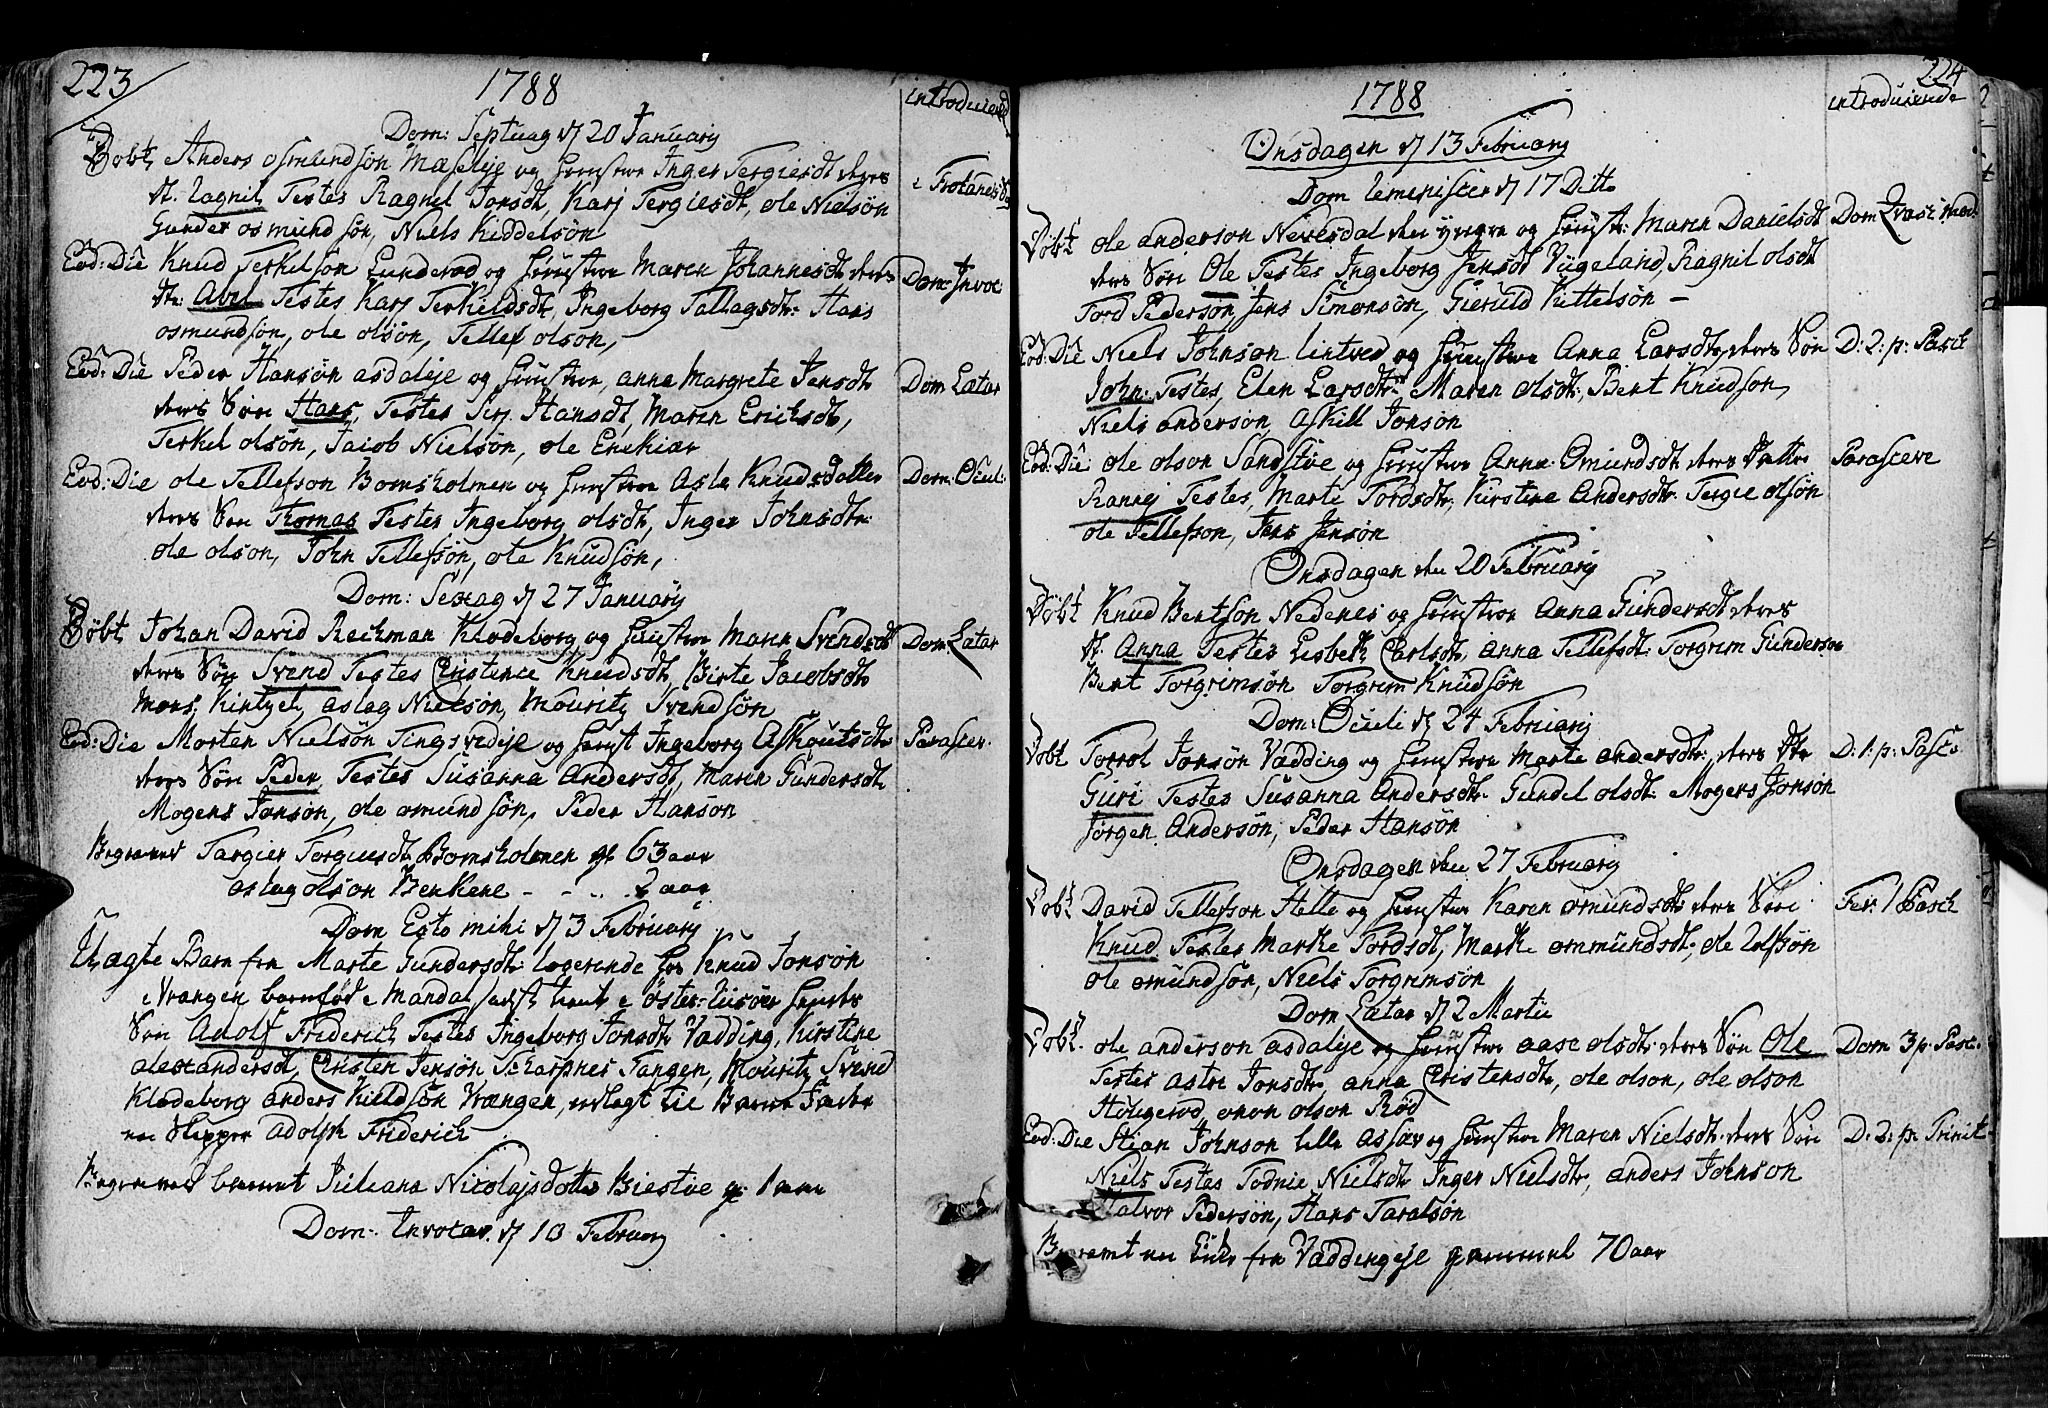 223
1788
introducerede
Dom: Septuag d 20 January
Døbt Anders osmundsøn Mæseleje og Hustru Inger Tergiersdt deres
dt. Ragnil Testes Ragnil Jonsdt, Karj Tergiesdt, ole Nielsøn
Gunder osmundsøn, Niels Kiddelsøn
Eod: Die Knud Terkelsøn Lunderød og Hustrue Maren Johannesdt deres
Dom: Invoc
dtr: Abel Testes Karj Terkieldsdt, Ingeborg Tallagsdtr: Hans
osmundsøn, ole olsøn, Tellef olson,
Eod: Die Peder Hansøn asdaleje og Hustrue, anna Margrete Jensdt
Dom Lætar
deres Søn Hans, Testes Sirj Hansdt, Maren Ericksdt,
Terkel olsøn, Jacob Nielsøn, ole Enekiær
Eod: Die ole Tellefson Bomsholmen og Hustrue Asla Knudsdatter
Dom: Oculi
deres Søn Thomas Testes Ingeborg olsdt, Inger Johnsdtr:
ole olson, John Tellefsøn, ole Knudsøn,
Dom: Sexag d 27 January
Døbt Johan David Reckman Klodeborg og Hustrue Maren Svendsdt
Dom: Lætar
deres Søn Svend Testes Cristence Knudsdt, Birte Jacobsdt
Mons Kintzel, aslag Nielsøn, Mouritz Svendsøn
Eod: Die Morten Nielsøn Tingsvedije og Hust Ingeborg Askoutsdt
Parascev.
deres Søn Peder Testes Susanna Andersdt, Maren Gundersdt
Mogens Jonsøn, ole omundsøn, Peder Hanson
Begraved Targier Torgiersdt Bomsholmen gl 63 aar
aslag olson Benkene - - .. 2 aar
Dom Esto mihi d 3 February
Uægte Barn fra Marte Gundersdt: logerende hos Knud Jonsøn
i Vrangen barnfød i Mandal, sidst tient i øster-riisøer hendes
Søn Adolf Friderich Testes Ingeborg Jonsdt Vadding, Kirstine
alexandersdt, Cristen Jensøn Skarpnes Tangen, Mouritz Svend
Klodeborg anders Killdsøn Vrangen, udlagt til Barne Fader
en Skipper adolph Friderich
Begraved barnet Juliana Nicolajsdotter Biestøe gl 1 aar
Dom: Invocav. d 10 February
224
1788
introducerede
Onsdagen d 13 February
Dom Reminiscer d 17 Ditto
Døbt ole anderson Neversdal den yngre og Hustr: Maren Danielsdt
Dom Qvasi mod.
deres Søn Ole Testes Ingeborg Jensdt Vigeland, Ragnil olsdt
Tord Pederson Jens Simonsøn, Gieruld Kittelsøn -
Eod: Die Niels Johnson lintved og Hustrue Anna Larsdtr deres Søn
D: 2: p: Pasch
John: Testes, Elen Larsdtr, Maren olsdt:, Bent Knudson,
Niels anderson, Askill Jonson
Eod: Die ole olson Sandstøe og Hustrue Anna: Omundsdt deres Datter
Parasceve
Rannej Testes, Marte Tordsdt, Kirstine Andersdt: Tergie olsøn
ole Tellefson, Jens Jensøn
Onsdagen den 20 February
Døbt Knud Bentsøn Nedenes og Hustrue Anna Gundersdt deres
dt. Anna Testes Lisbeth Carlsdt, anna Tellefsdt: Torgrim Gunderson
Bent Torgrimsøn Torgrim Knudsøn
Dom: Oculi d 24 February
Døbt Torrol Jonsøn Vadding og Hustrue Marte andersdtr: deres dtr
D: 1: p: Pasc.
Guri Testes Susanna Andersdtr: Gundel olsdt: Mogens Jonsøn
Jørgen Andersøn, Peder Hansøn
Onsdagen den 27 February
Døbt David Tellefsøn Helle og Hustru Karen omundsdt: deres Søn
Fer: 1 Pasch
Knud Testes Marthe Tordsdt, Marthe ommundsdt:, ole Ulfsøn
ole omundsøn, Niels Torgrimsøn
Dom Lætar d 2 Martii
Døbt. ole anderson asdaleje og Hustrue aase olsdt: deres Søn Ole
Dom 3 p. Pasc
Testes astri Jonsdtr, anna Cristensdt, ole olson, ole olson
Hougerød, onon olson Rød
Eod: Die Stian Johnson lille assæv og Hustrue Maren Nielsdt: deres Søn
D: 2: p: Trinit
Niels Testes Todnie Nielsdt, Inger Nielsdtr, anders Johnson
Halvor Pedersøn, Hans Taralsøn
Begravet en Enke fra Vaddingeje gammel 70 aar